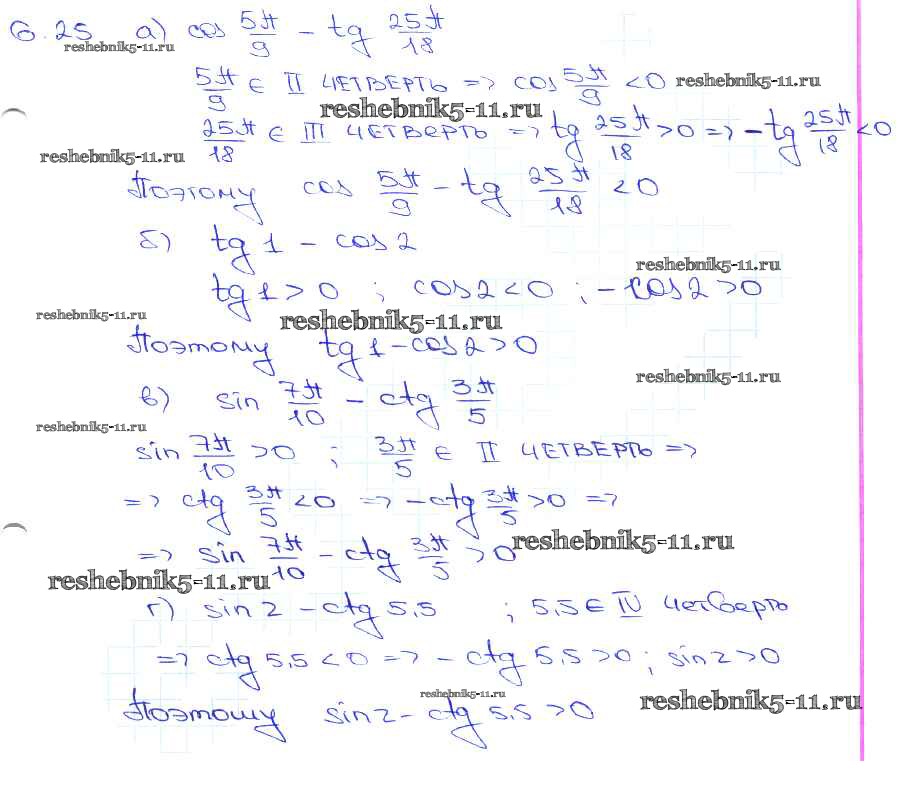 6.25 а) cos 5π/9 − tg 25π/18
reshebnik5-11.ru
5π/9 ∈ II ЧЕТВЕРТЬ => cos 5π/9 < 0 reshebnik5-11.ru
reshebnik5-11.ru
25π/18 ∈ III ЧЕТВЕРТЬ => tg 25π/18 > 0 => − tg 25π/18 < 0
reshebnik5-11.ru
Поэтому cos 5π/9 − tg 25π/18 < 0
б) tg 1 − cos 2
reshebnik5-11.ru
tg 1 > 0 ; cos 2 < 0 ; − cos 2 > 0
reshebnik5-11.ru reshebnik5-11.ru
Поэтому tg 1 − cos 2 > 0
reshebnik5-11.ru
в) sin 7π/10 − ctg 3π/5
reshebnik5-11.ru
sin 7π/10 > 0 ; 3π/5 ∈ II ЧЕТВЕРТЬ =>
=> ctg 3π/5 < 0 => − ctg 3π/5 > 0 =>
=> sin 7π/10 − ctg 3π/5 > 0 reshebnik5-11.ru
reshebnik5-11.ru
г) sin 2 − ctg 5,5 ; 5,5 ∈ IV четверть
=> ctg 5,5 < 0 => − ctg 5,5 > 0 ; sin 2 > 0
reshebnik5-11.ru reshebnik5-11.ru
Поэтому sin 2 − ctg 5,5 > 0